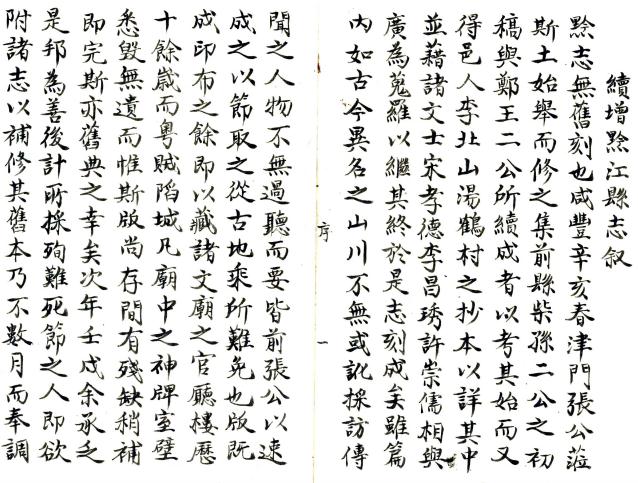 續增黔江縣志叙
黔志無舊刻也咸豐辛亥春津門張公蒞
斯土始舉而修之集前縣柴孫二公之初
稿與鄭王二公所續成者以考其始而又
得邑人李北山湯鶴村之抄本以詳其中
並藉諸文士宋孝德李昌琇許崇儒相與
廣為蒐羅以繼其終於是志刻成矣雖篇
内如古今異名之山川不無或訛採訪傳
序
一
聞之人物不無過聽而要皆前張公以速
成之以節取之從古地乘所難免也版既
成印布之餘即以藏諸文廟之官廳樓歷
十餘嵗而粤賊陷城凡廟中之神牌室壁
悉毀無遺而惟斯版尚存間有殘缺稍補
即完斯亦舊典之幸矣次年壬戌余承乏
是邦為善後計所採殉難死節之人即欲
附諸志以補修其舊本乃不數月而奉調